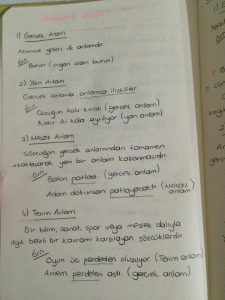 1) Gerçek Anlam
Aklımıza gelen ilk anlamdır.
Örn: Burun (organ olan burun)
2) Yan Anlam
Gerçek anlamla, anlamca ilişkilidir
Örn: Çocuğun kolu kırıldı (gerçek anlam)
Nehir iki kola ayrılıyor (yan anlam)
3) Mecaz Anlam
Sözcüğün gerçek anlamından tamamen
uzaklaşarak yeni bir anlam kazanmasıdır.
Örn: Balon patladı. (gerçek anlam)
Adam dokunsan patlayacaktı (mecaz anlam)
4) Terim Anlam
Bir bilim, sanat, spor veya meslek dalıyla
ilgili belirli bir kavramı karşılayan sözcüklerdir
Örn: Oyun üç perdeden oluşuyor (Terim anlam)
Annem perdeleri astı. (gerçek anlam)